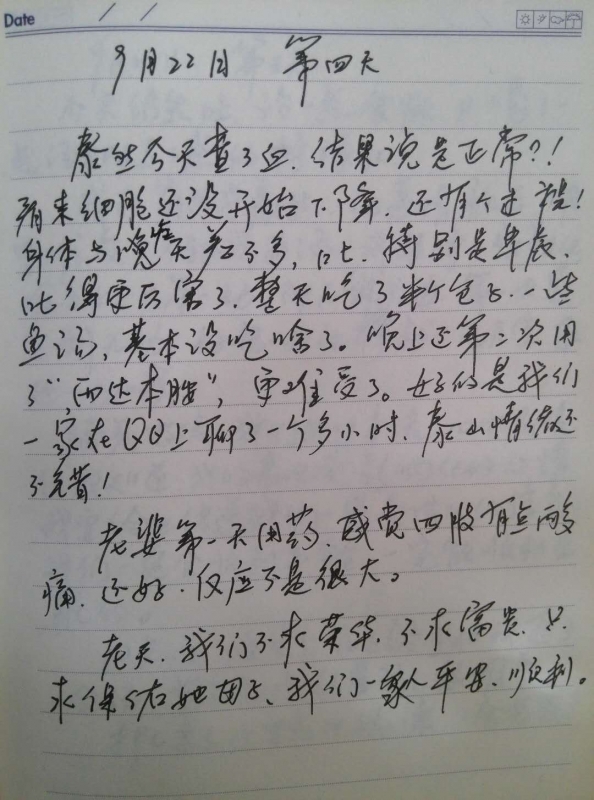 Date / /
9月22日 第四天
泰然今天查了血.结果说是正常?!
看来细胞还没开始下降.还有个过程!
身体与昨天差不多,吐.特别是早晨.
吐得更厉害了.整天吃了半个包子.一些
鱼汤,基本没吃啥了。晚上还第二次用
了“西达本胺”,更难受了。好的是我们
一家在QQ上聊了一个多小时.泰山情绪还
不错!
老婆第一天用药.感觉四肢有点酸
痛.还好.反应不是很大。
老天.我们不求荣华.不求富贵.只
求保佑她母子、我们一家人平安、顺利。